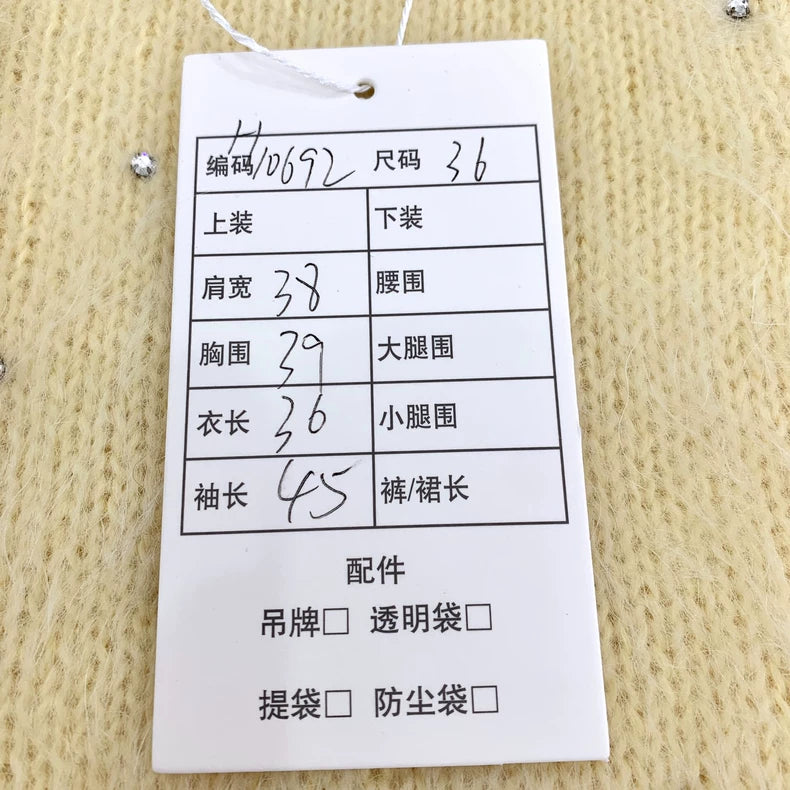 编码 H10692 尺码 36
上装 下装
肩宽 38 腰围
胸围 39 大腿围
衣长 36 小腿围
袖长 45 裤/裙长
配件
吊牌□ 透明袋□
提袋□ 防尘袋□